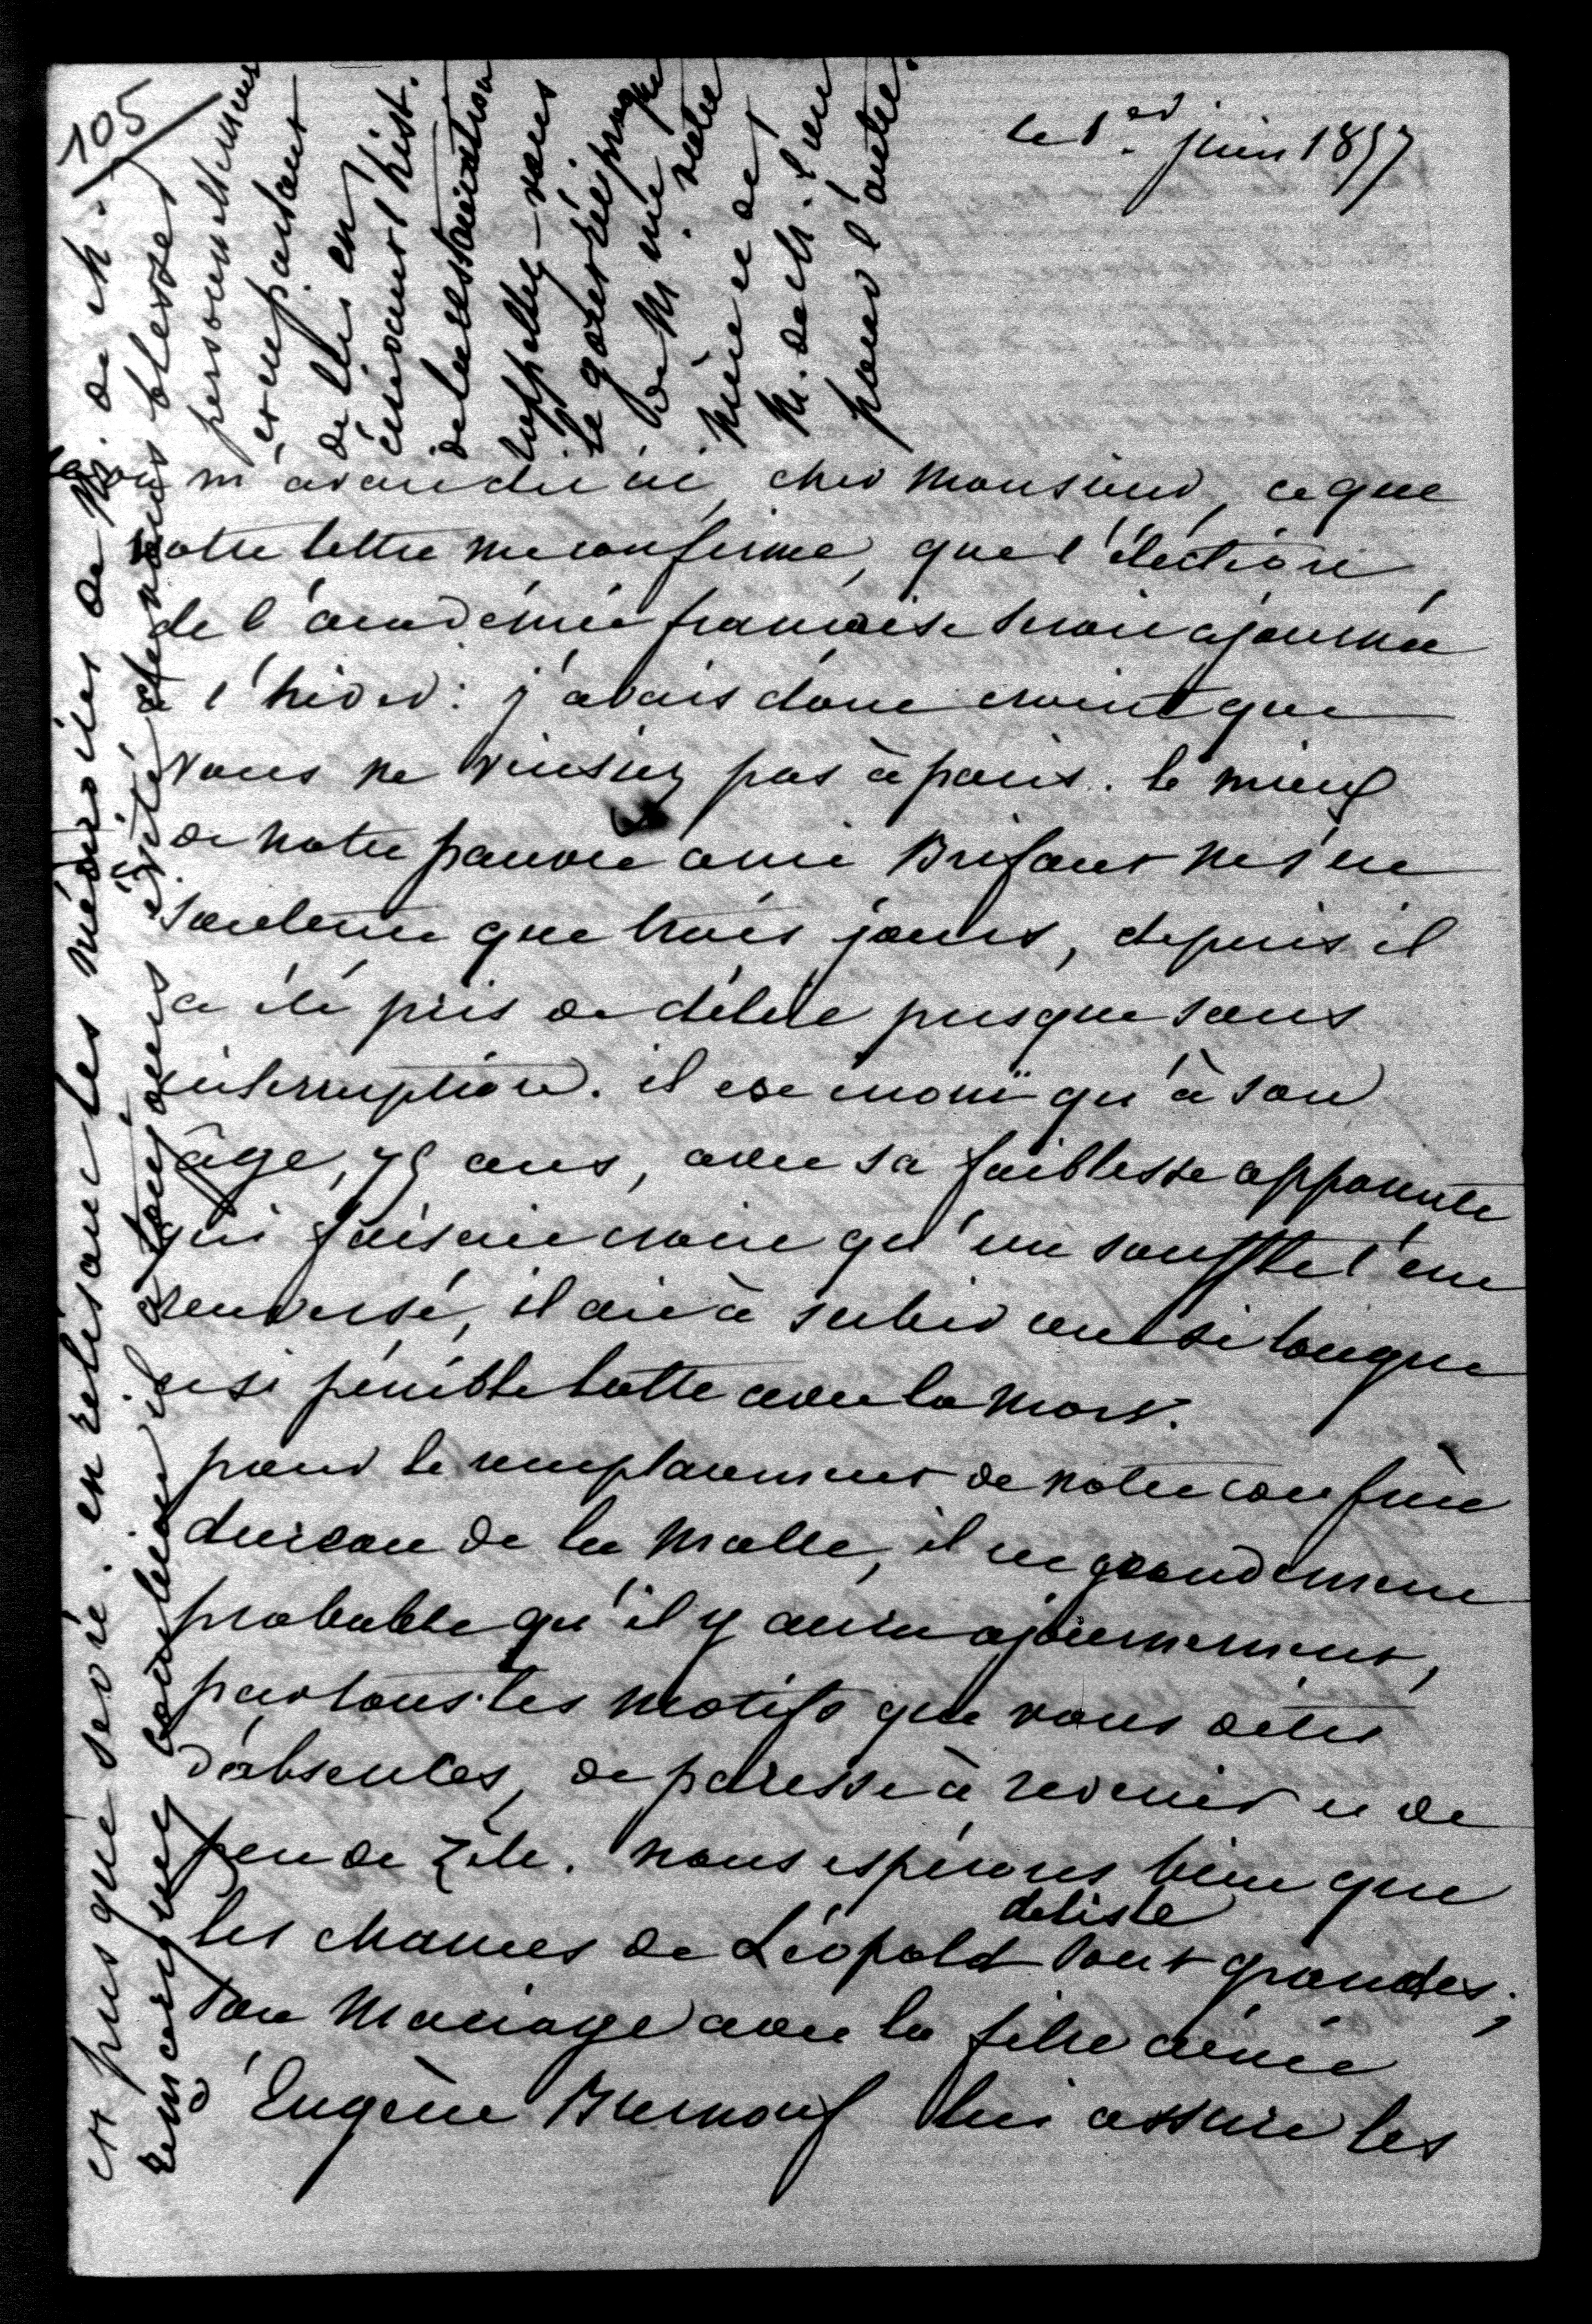 105
le 1er juin 1857
on m'avait dit ici, cher Monsieur, ce que
votre lettre me confirme, que l'élection
de l'académie française serait ajournée
à l'hiver: j'avais donc craint que
vous ne vinsiez pas à paris. le mieux
de notre pauvre ami Brifaut ne s'est
soutenu que trois jours, depuis il
a été pris de délire presque sans
interruption. il est inouï qu'à son
âge, 75 ans, avec sa faiblesse apparente
qui faisait croire qu'un souffle l'eut
renversé, il ait à subir une si longue
et si pénible lutte avec la mort.
pour le remplacement de notre confrère
dureau de la Malle, il est grandement
probable qu'il y aura ajournement,
par tous les motifs que vous dites
d'absentes, de paresse à revenir et de
peu de zèle. nous espérons bien que
les chances de Léopold delisle sont grandes;
son Mariage avec la fille aînée
d'Eugène Burnouf lui assure les
et puis que serai. en relisant les médisoires de M. de Ch.
remarquez combien il a toujours évité de nous blesser
personnellement
et en parlant
de lui en
écrivant l'hist.
de la restauration
rappellez-vous
le goût réciproque
de Me votre
Mère et de
M. de Ch. l'un
pour l'autre.